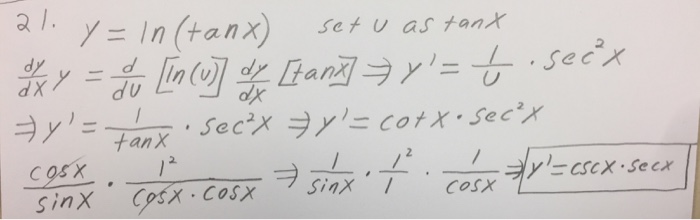 21. y = ln(tanx) set u as tanx
dy/dx y = d/du [ln(u)] dy/dx [tanx] ⇒ y' = 1/u · sec²x
⇒ y' = 1/tanx · sec²x ⇒ y' = cotx · sec²x
cosx/sinx · 1²/cosx·cosx ⇒ 1/sinx · 1²/1 · 1/cosx ⇒ y' = cscx·secx